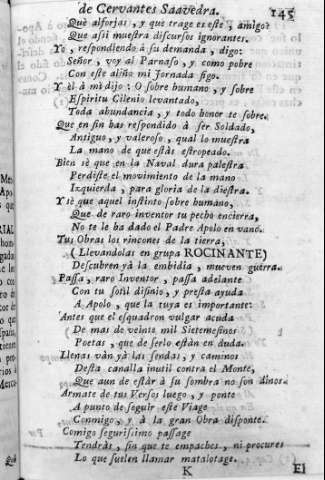 de Cervantes Saavedra. 145
Què alforjas, y que trage es este, amigo?
Que assi muestra discursos ignorantes.
Yo, respondiendo à su demanda, digo:
Señor, voy al Parnaso, y como pobre
Con este aliño mi jornada sigo.
Y èl à mi dijo: O sobre humano, y sobre
Espiritu Cilenio levantado,
Toda abundancia, y todo honor te sobre.
Que en fin has respondido à ser Soldado,
Antiguo, y valeroso, qual lo muestra
La mano de que estàs estropeado.
Bien sè que en la Naval dura palestra
Perdiste el movimiento de la mano
Izquierda, para gloria de la diestra.
Y sè que aquel instinto sobre humano,
Que de raro inventor tu pecho encierra,
No te le ha dado el Padre Apolo en vano.
Tus Obras los rincones de la tierra,
(Llevandolas en grupa ROCINANTE)
Descubren yà la embidia, mueven guerra.
Passa, raro Inventor, passa adelante
Con tu sotil disinio, y presta ayuda
A Apolo, que la tuya es importante:
Antes que el esquadron vulgar acuda
De mas de veinte mil Sietemesinos
Poetas, que de serlo estàn en duda.
Llenas vàn yà las sendas, y caminos
Desta canalla inutil contra el Monte,
Que aun de estàr à su sombra no son dinos.
Armate de tus Versos luego, y ponte
A punto de seguir este Viage
Conmigo, y à la gran Obra disponte.
Comigo segurissimo passage
Tendràs, sin que te empaches, ni procures
Lo que suelen llamar matalotage.
K El